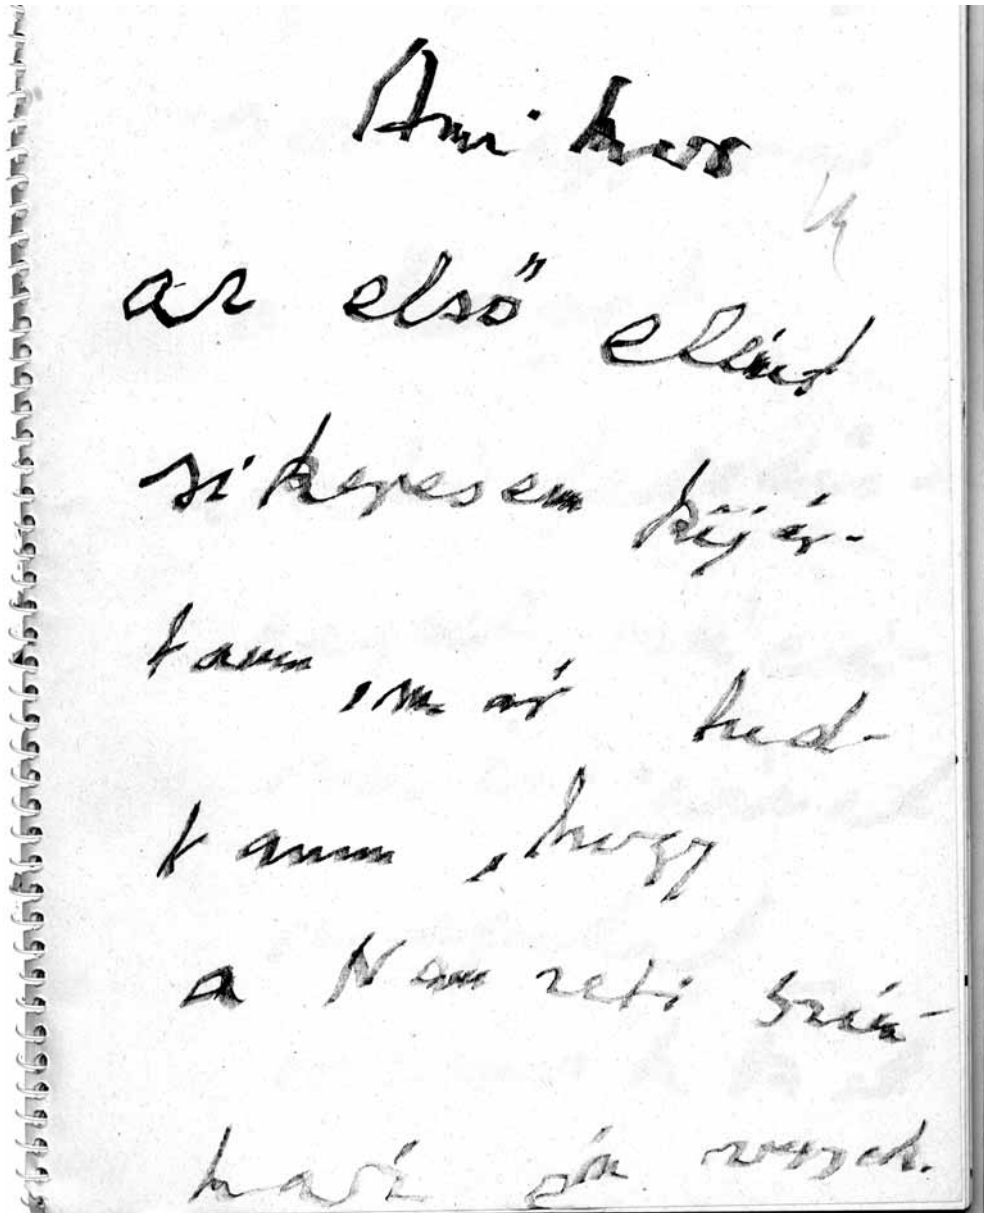 Amikor
az első elént
sikeresen kijár-
tam, már tud-
tam, hogy
a Nemzeti Szín-
ház én vagyok.